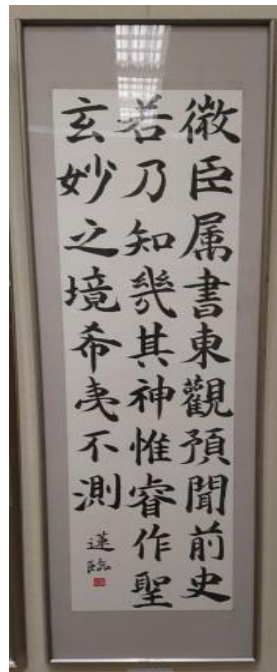 微臣属書東觀預聞前史
若乃知幾其神惟睿作聖
玄妙之境希夷不測
蓮臨